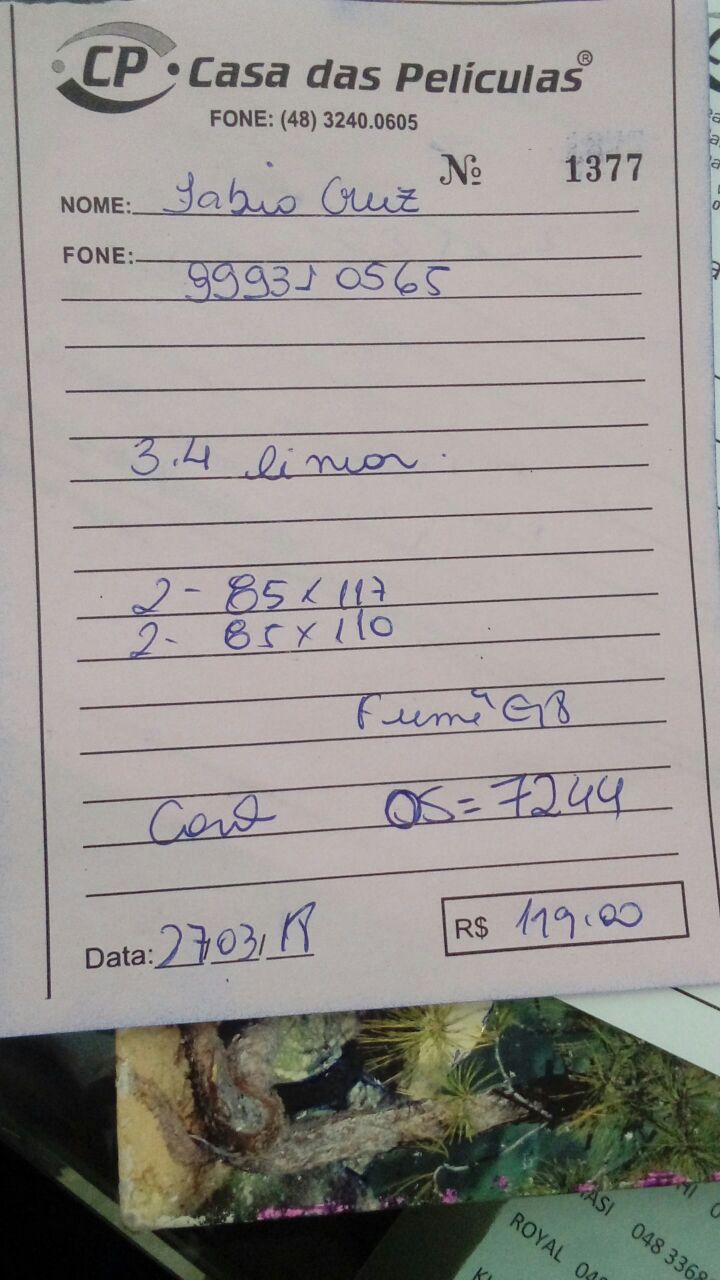 CP Casa das Películas®
FONE: (48) 3240.0605
Nº 1377
NOME: Fabio Cruz
FONE:
99931 0565
3.4 linear.
2- 85 x 117
2- 85 x 110
Fumê G8
OS=7244
Data: 27/03/
R$ 119.00
ASI 048 3368
ROYAL 04